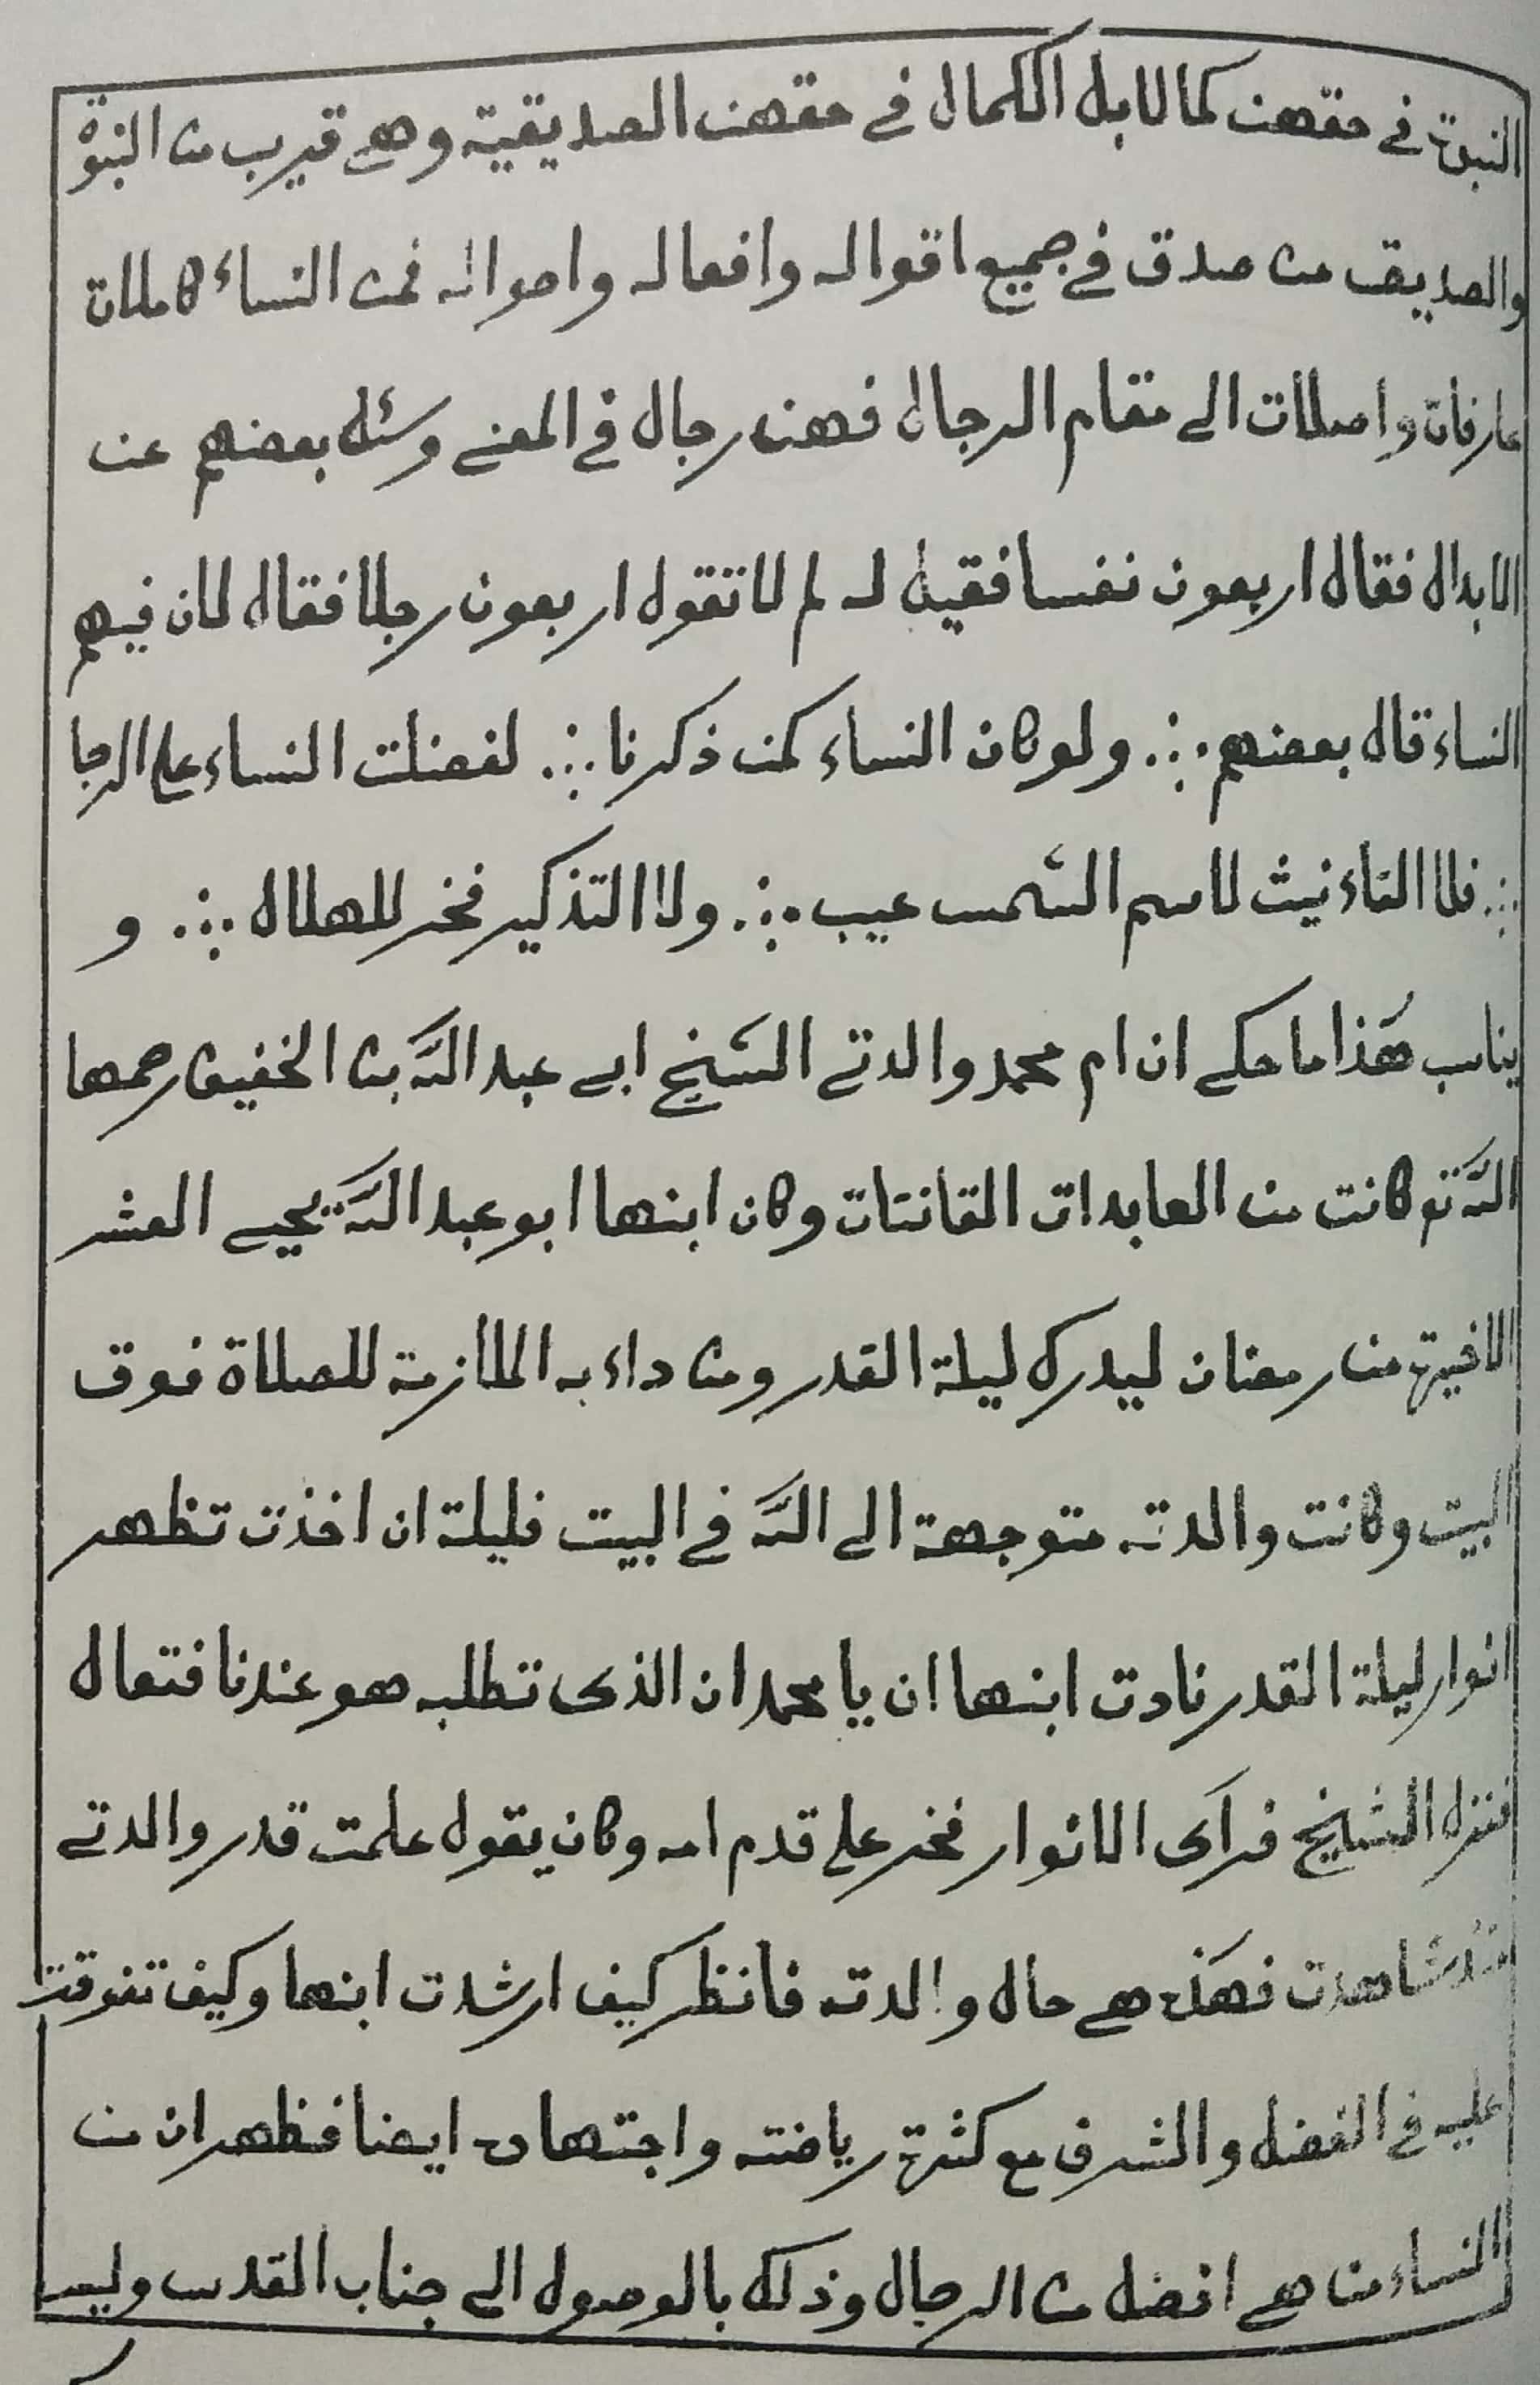 النبوة في حقهن كمالا بل الكمال في حقهن الصديقية وهي قريب من النبوة
والصديق من صدق في جميع اقواله وافعاله واحواله فمن النساء كاملات
عارفات واصلات الى مقام الرجال فهن رجال في المعنى وسئل بعضهم عن
الابدال فقال اربعون نفسا فقيل له لم لا تقول اربعون رجلا فقال لان فيهم
النساء قال بعضهم ∴ ولو كان النساء كمن ذكرنا ∴ لفضلت النساء على الرجا
∴ فلا التاءنيث لاسم الشمس عيب ∴ ولا التذكير فخر للهلال ∴ و
يناسب هذا ما حكي ان ام محمد والدتي الشيخ ابي عبد الله بن الخفيف رحمها
الله تع كانت من العابدات القانتات وكان ابنها ابو عبد الله يحيي العشر
الاخيرة من رمضان ليدرك ليلة القدر ومن داءبه الملازمة للصلاة فوق
البيت وكانت والدته متوجهة الى الله في البيت فليلة ان اخذت تظهر
انوار ليلة القدر نادت ابنها ان يا محمد ان الذى تطلبه هو عندنا فتعال
فنزل الشيخ فرآى الانوار فخر على قدم امه وكان يقول علمت قدر والدتي
شاهدت فهذه هي حال والدته فانظر كيف ارشدت ابنها وكيف تفوقت
عليه في الفضل والشرف مع كثرة رياضته واجتهاده ايضا فظهر ان من
النساء من هي افضل من الرجال وذلك بالوصول الى جناب القدس وليس